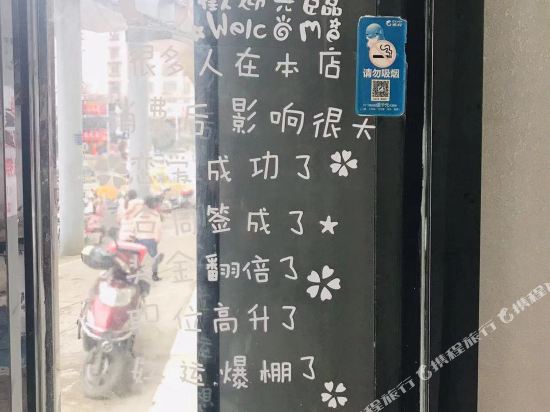 歡迎光臨
Welcome
很多人在本店
消费后影响很大
恋爱成功了
合同签成了
奖金翻倍了
职位高升了
好运爆棚了
请勿吸烟
携程旅行
携程旅行